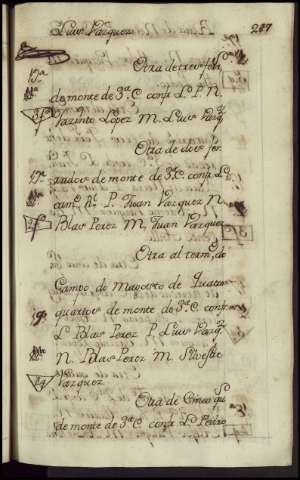 Luis Vazquez 247
Otra de tres fer
de monte de 3ª C confr. L. P. N.
Jazinto Lopez M. Luis Vazqz
Otra de dos fer
rados de monte de 3ª C. confr. L.
cam.º P. Juan Vazquez N.
Blas Perez M. Juan Vazquez
Otra al term.º de
Campo do Mayo de quatro
quartos de monte de 3ª C confr.
L. Blas Perez P. Luis Vazqz
N. Blas Perez M. Silvestre
Vazquez
Otra de Cinco qu
de monte de 3ª C confr. L. Pedro